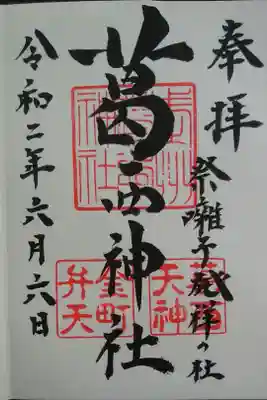 奉拝
祭囃子発祥の社
葛西神社
令和二年六月六日
金町
弁天
天神